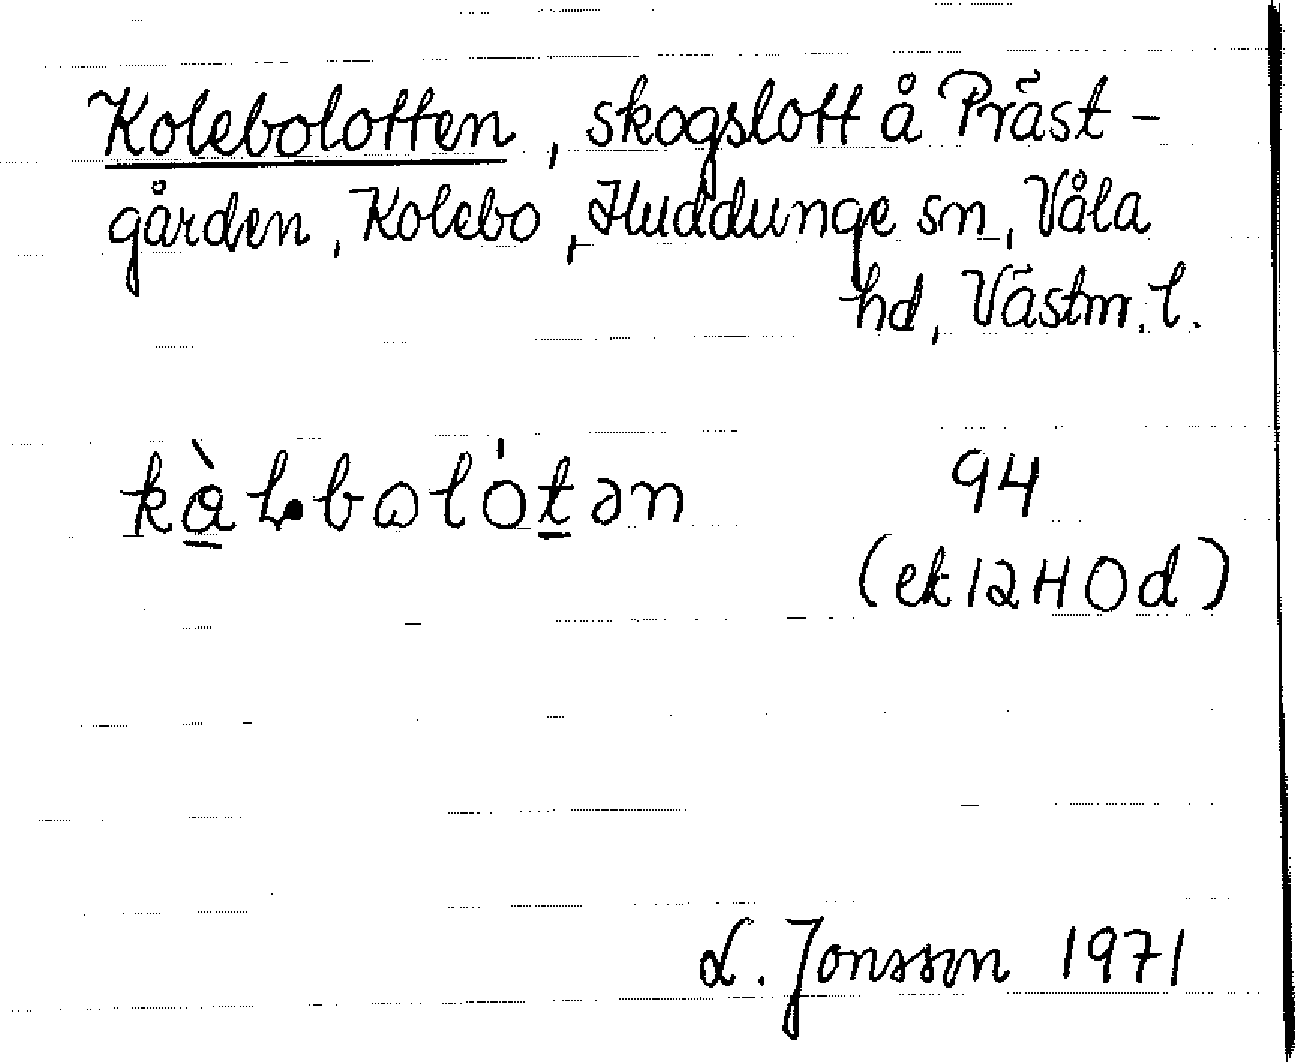 Kolebolotten, skogslott å Präst-
gården, Kolebo, Huddunge sn, Våla
hd, Västm. l.
94
(ek 12H0d)
L. Jonsson 1971